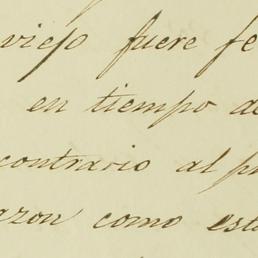 viejo fuere fe
en tiempo de
contrario al pr
azon como est